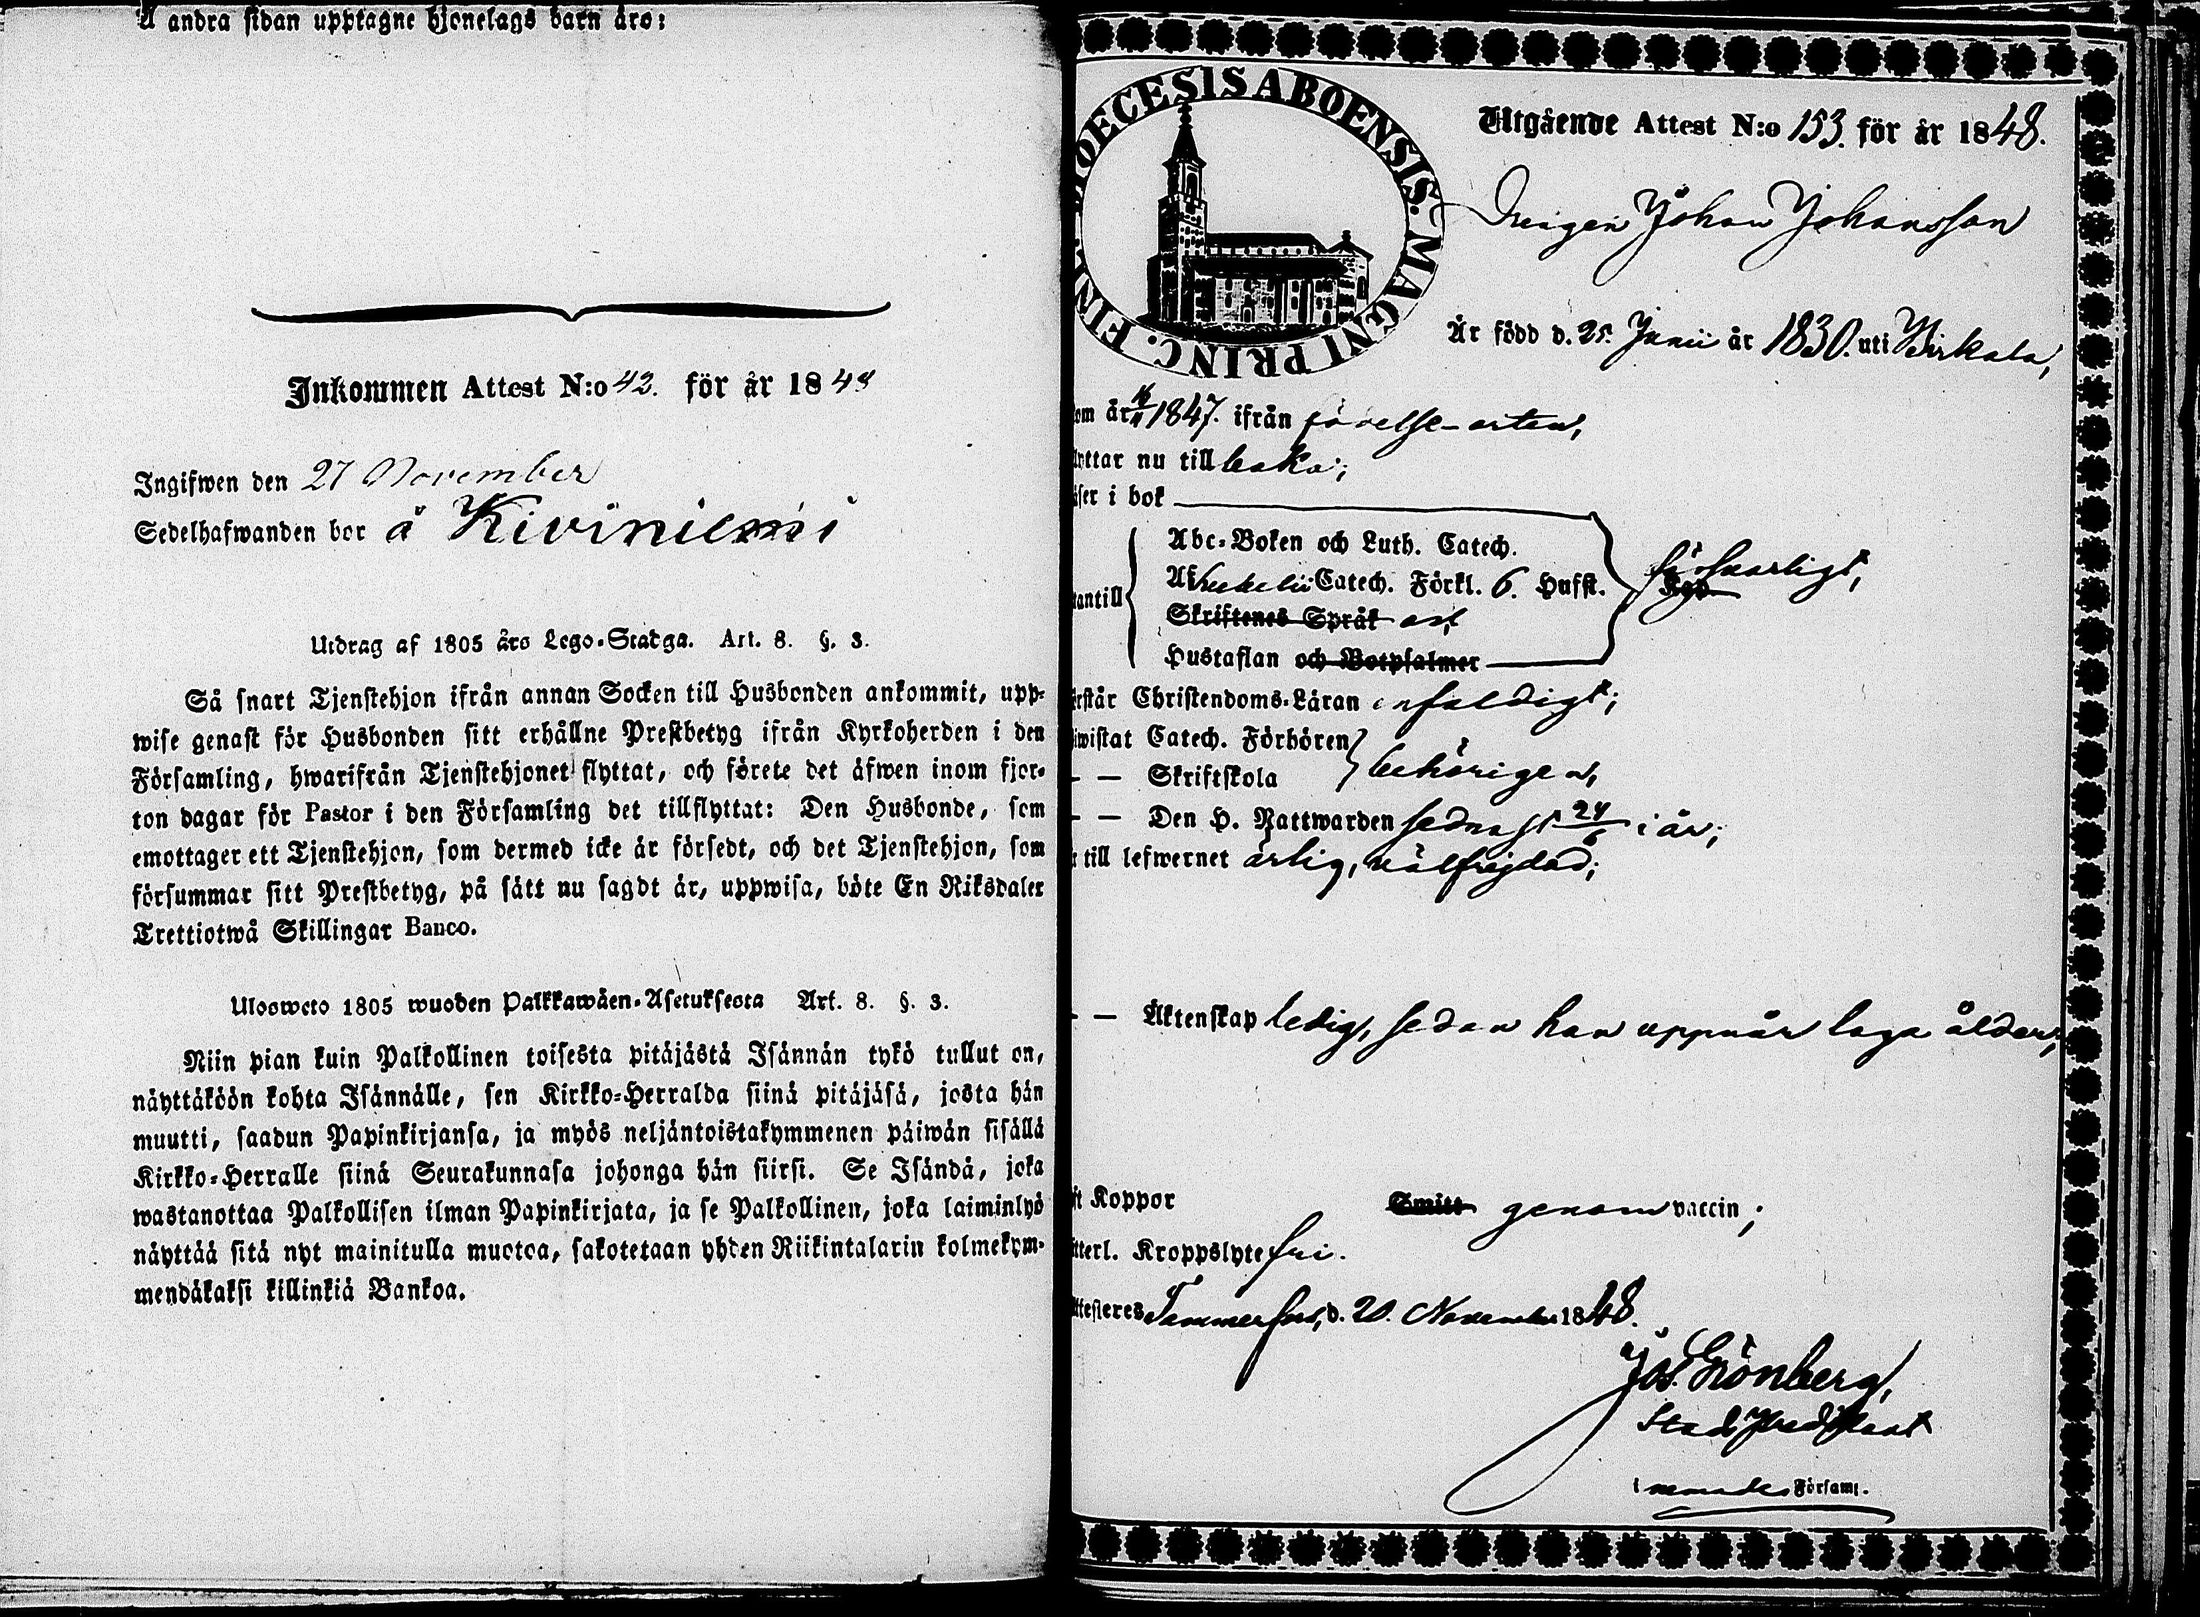 Å andra sidan upptagne hjonelags barn äro:
Inkommen Attest N:o 42. för år 1848
Ingifwen den 27 November
Sedelhafwanden bor å Kiviniemi
Utdrag af 1805 års Lego-Stadga. Art. 8. §. 3.
Så snart Tjenstehjon ifrån annan Socken till Husbonden ankommit, upp-
wise genast för Husbonden sitt erhållne Prestbetyg ifrån Kyrkoherden i den
Församling, hwarifrån Tjenstehjonet flyttat, och förete det äfwen inom fjor-
ton dagar för Pastor i den Församling det tillflyttat: Den Husbonde, som
emottager ett Tjenstehjon, som dermed icke är försedt, och det Tjenstehjon, som
försummar sitt Prestbetyg, på sätt nu sagdt är, uppwisa, böte En Riksdaler
Trettiotwå Skillingar Banco.
Ulosweto 1805 wuoden Palkkawäen-Asetuksesta Art. 8. §. 3.
Niin pian kuin Palkollinen toisesta pitäjästä Isännän tykö tullut on,
näyttäköön kohta Isännälle, sen Kirkko-Herralda siinä pitäjäsä, josta hän
muutti, saadun Papinkirjansa, ja myös neljäntoistakymmenen päiwän sisällä
Kirkko-Herralle siinä Seurakunnasa johonga hän siirsi. Se Isändä, joka
wastanottaa Palkollisen ilman Papinkirjata, ja se Palkollinen, joka laiminlyö
näyttää sitä nyt mainitulla muotoa, sakotetaan yhden Riikintalarin kolmekym-
mendäkaksi killinkiä Bankoa.
DIOECESIS ABOENSIS. MAGNI PRINC. FINL.
Utgående Attest N:o 153. för år 1848.
Drengen Johan Johansson
Är född d. 25. Junii år 1830. uti Birkala,
om år 1847. ifrån födelse-orten,
yttar nu tillbaka;
äser i bok
Abc-Boken och Luth. Catech.
Catech. Förkl. 6. Hufst. försvarligt,
tantill
Skriftenes Språk och
Hustaflan och Botpsalmer
rstår Christendoms-Läran enfaldigt;
iwistat Catech. Förhören
— — Skriftskola behörigen,
— — Den H. Nattwarden sednast 24/6 i år;
till lefwernet ärlig, välfrejdad;
— — Äktenskap ledig, sedan han uppnår laga ålder;
ft Koppor Smitt genom vaccin;
tterl. Kroppslyte fri.
ttesteres Tammerfors, d. 20. November 1848.
Jos. Grönberg,
Stadspredikant
i nemnde Församl.